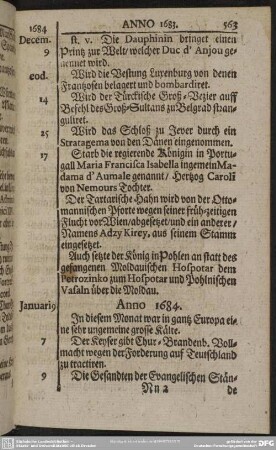 ANNO 1683. 563
1684
Decem. st. v. Die Dauphinin bringet einen
9 Printz zur Welt/ welcher Duc d' Anjou ge-
nennet wird.
eod. Wird die Vestung Luxenburg von denen
Frantzosen belagert und bombardiret.
14 Wird der Türckische Groß-Vezier auff
Befehl des Groß-Sultans zu Belgrad stran-
guliret.
25 Wird das Schloß zu Jever durch ein
Stratagema von den Dänen eingenommen.
17 Starb die regierende Königin in Portu-
gall Maria Francisca Isabella ingemein Ma-
dama d' Aumale genannt/ Hertzog Caroli
von Nemours Tochter.
Der Tartarische Hahn wird von der Otto-
mannischen Pforte wegen seiner früh-zeitigen
Flucht vor Wien/ abgesetzet/ und ein anderer/
Namens Adzy Kirey, aus seinem Stamm
eingesetzet.
Auch setzte der König in Pohlen an statt des
gefangenen Moldauischen Hospotar dem
Petrozinko zum Hospotar und Pohlnischen
Vasaln über die Moldau.
Januarij Anno 1684.
In diesem Monat war in gantz Europa ei-
ne sehr ungemeine grosse Kälte.
7 Der Keyser gibt Chur-Brandenb. Voll-
macht wegen der Forderung auf Teutschland
zu tractiren.
9 Die Gesandten der Evangelischen Stän-
Nn 2 de